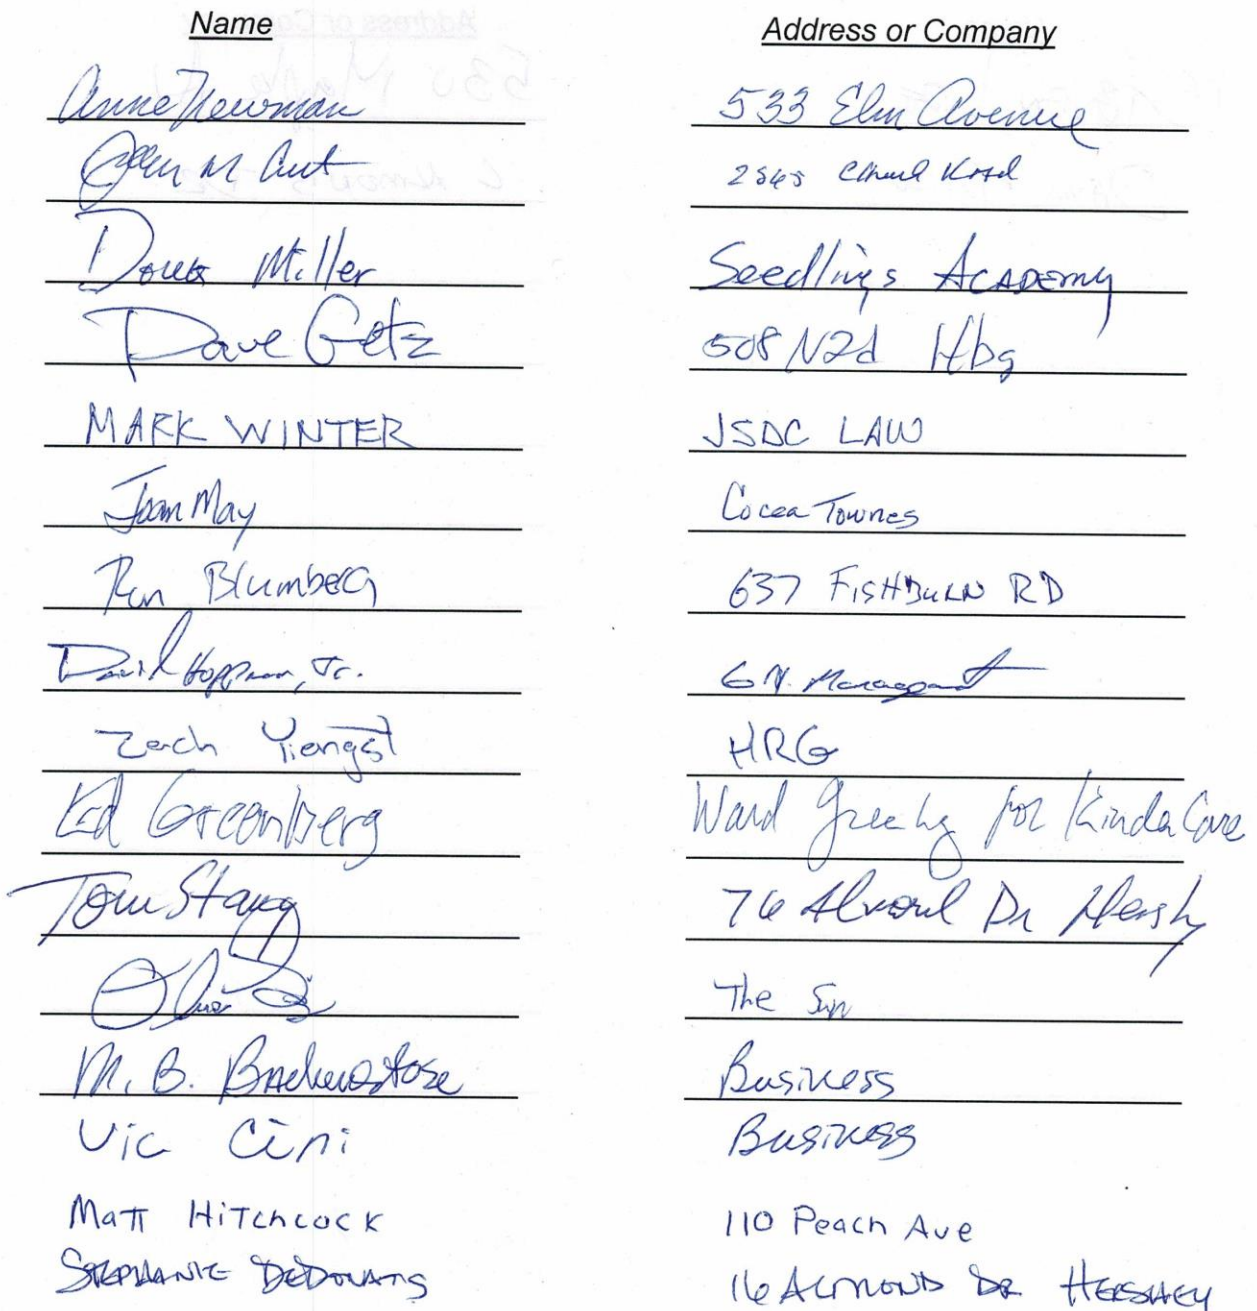 Name Address or Company
Anne Newman 533 Elm Avenue
M 2565 Road
Doug Miller Seedlings Academy
Dave Getz 508 N 2d Hbg
MARK WINTER JSDC LAW
Joan May Cocoa Townes
Ron Blumberg 637 FISHBURN RD
David Hoffman, Jr. Management
Zach Yiengst HRG
Ed Greenberg Ward for Kinda Care
Tom Stang 76 Almond Dr Hershy
The Sun
M. B. Bachenstose Business
Vic Cini Business
Matt Hitchcock 110 Peach Ave
STEPHANIE DEDONATIS 16 ALMOND DR HERSHEY